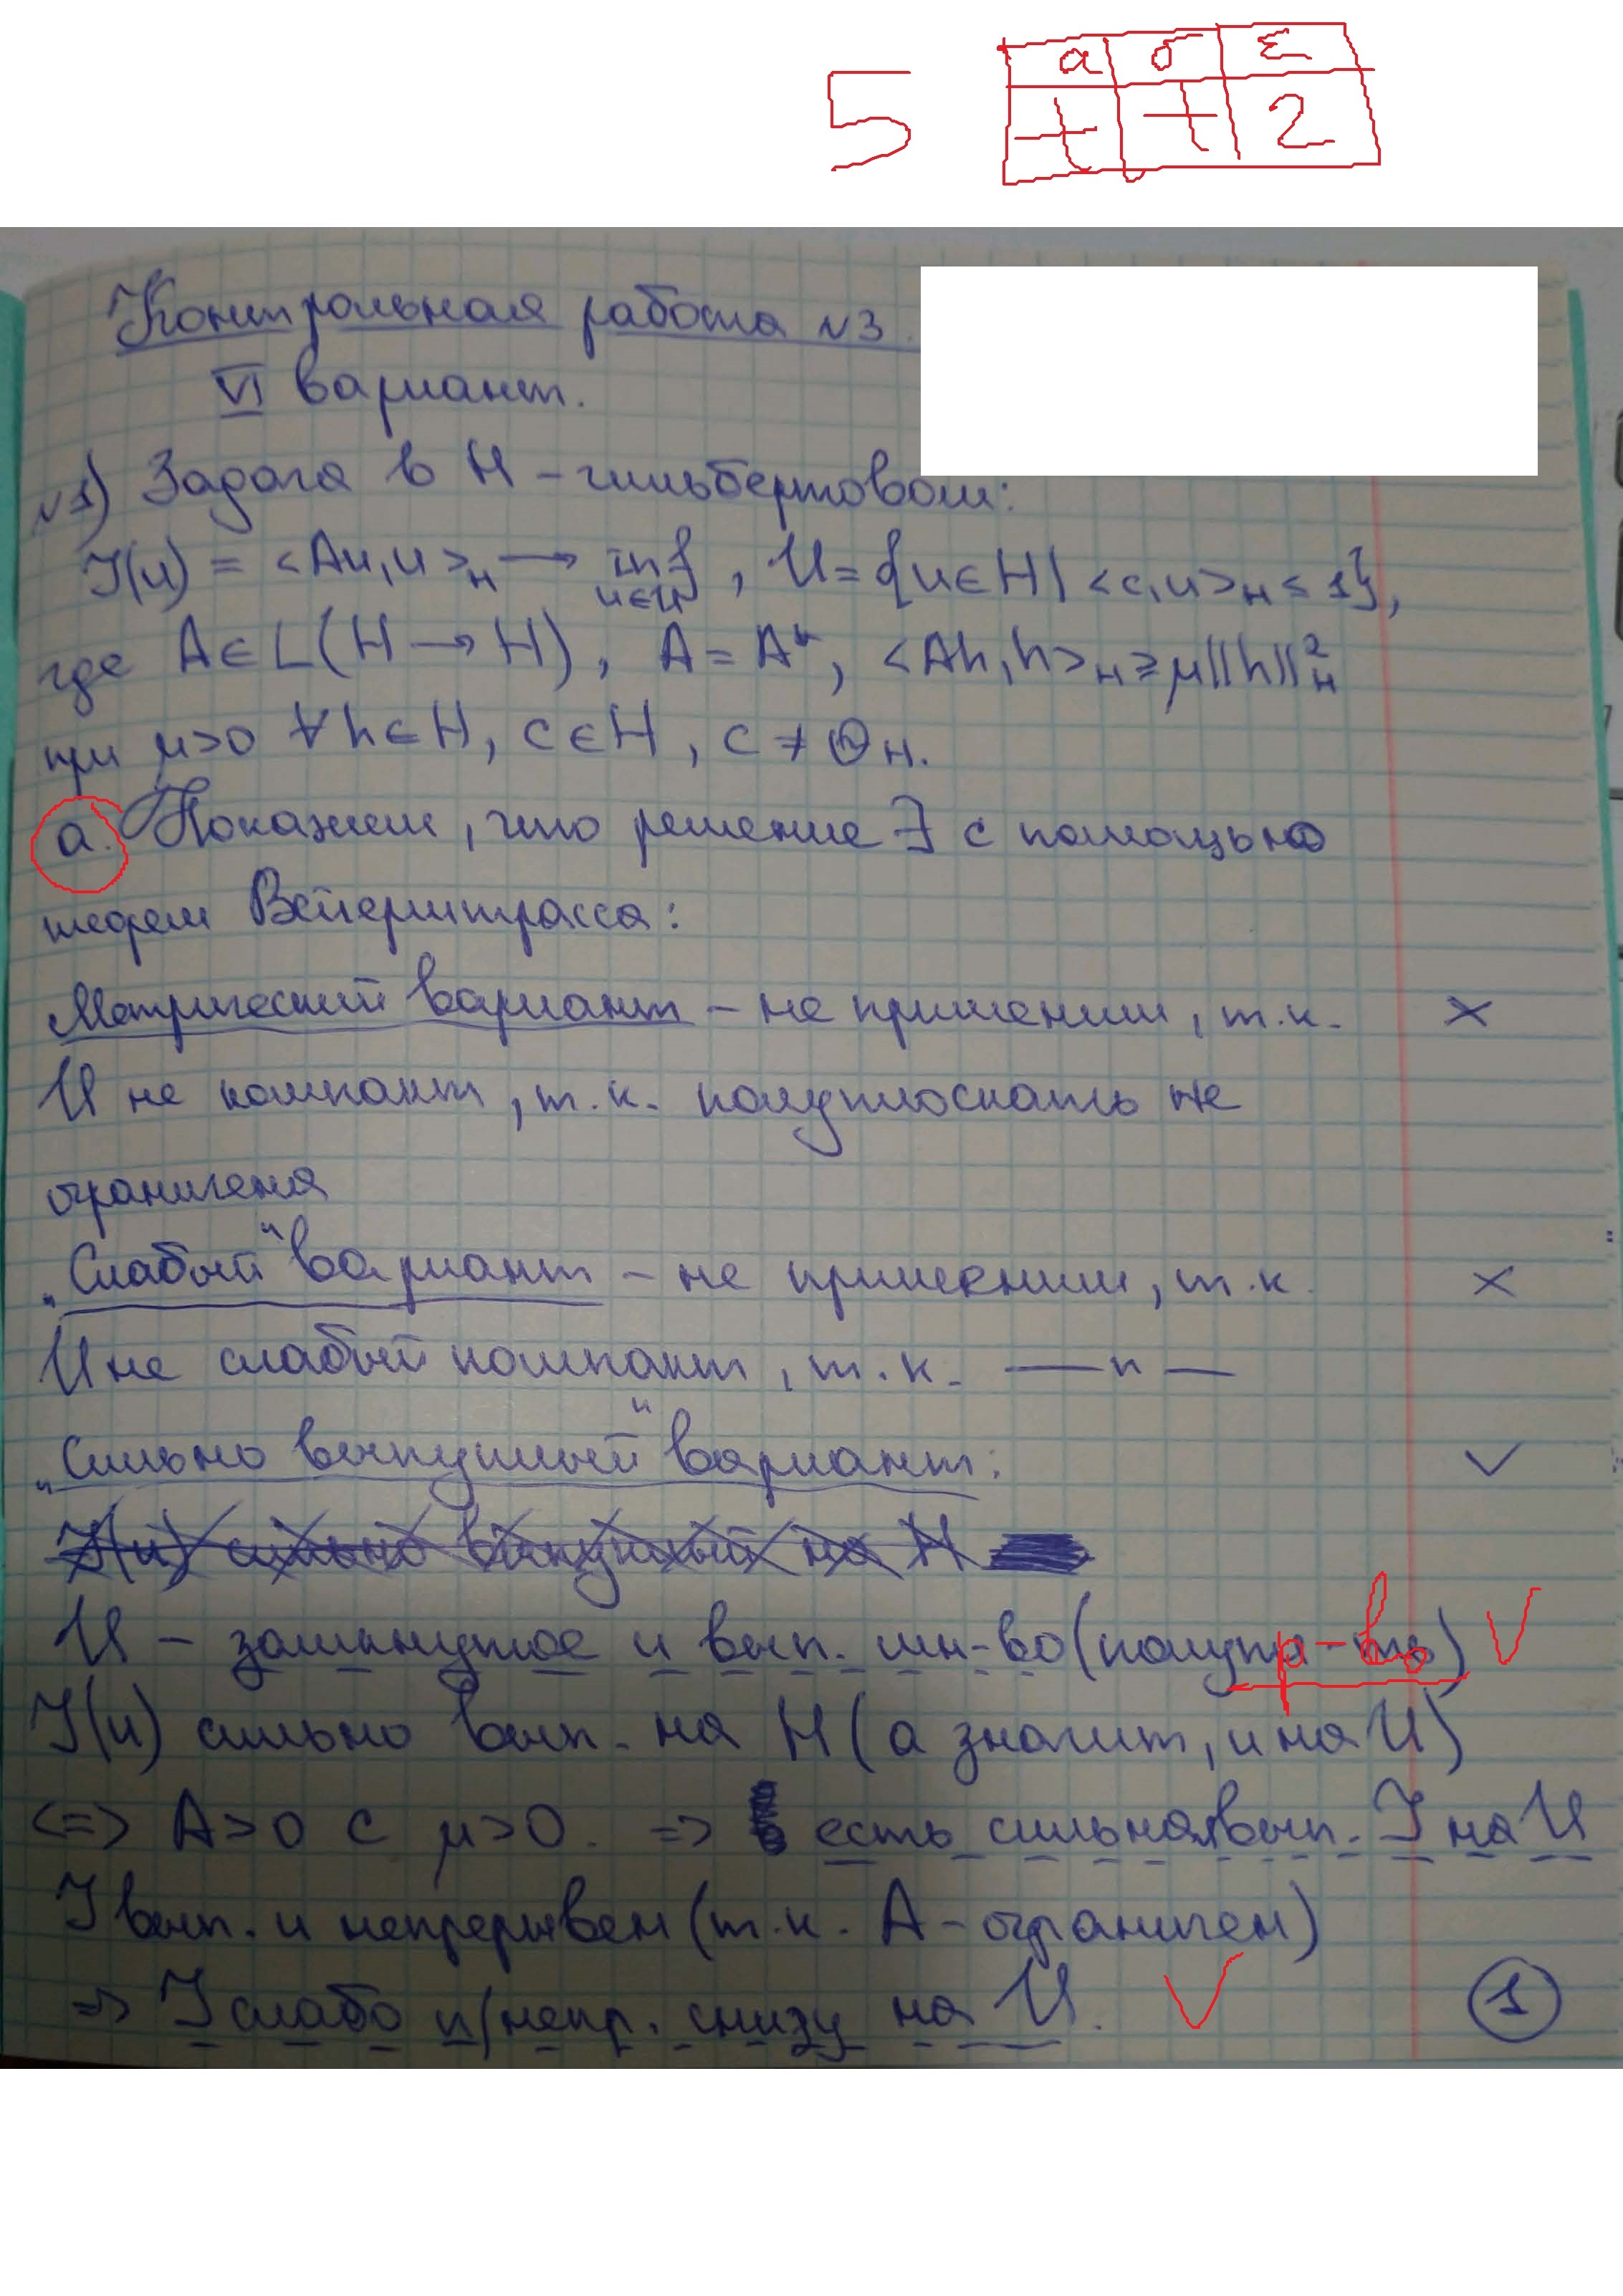 5
а б Σ
+ + 2
Контрольная работа №3.
VI вариант.
№1) Задача в H – гильбертовом:
J(u) = <Au,u>_H → inf u∈U, U={u∈H| <c,u>_H ≤ 1},
где A∈L(H→H), A=A*, <Ah,h>_H ≥ μ||h||²_H
при μ>0 ∀h∈H, c∈H, c≠Θ_H.
а. Покажем, что решение ∃ с помощью
теорем Вейерштрасса:
Метрический вариант – не применим, т.к. ×
U не компакт, т.к. полуплоскость не
ограничена
„Слабый" вариант – не применим, т.к. ×
U не слабый компакт, т.к. —〃—
„Сильно выпуклый" вариант: ✓
J(u) сильно выпуклый на H
U – замкнутое и вып. мн-во (полупр-во) ✓
J(u) сильно вып. на H (а значит, и на U)
<=> A>0 с μ>0. => есть сильная вып. J на U
J вып. и непрерывен (т.к. A – ограничен)
=> J слабо п/непр. снизу на U. ✓
1